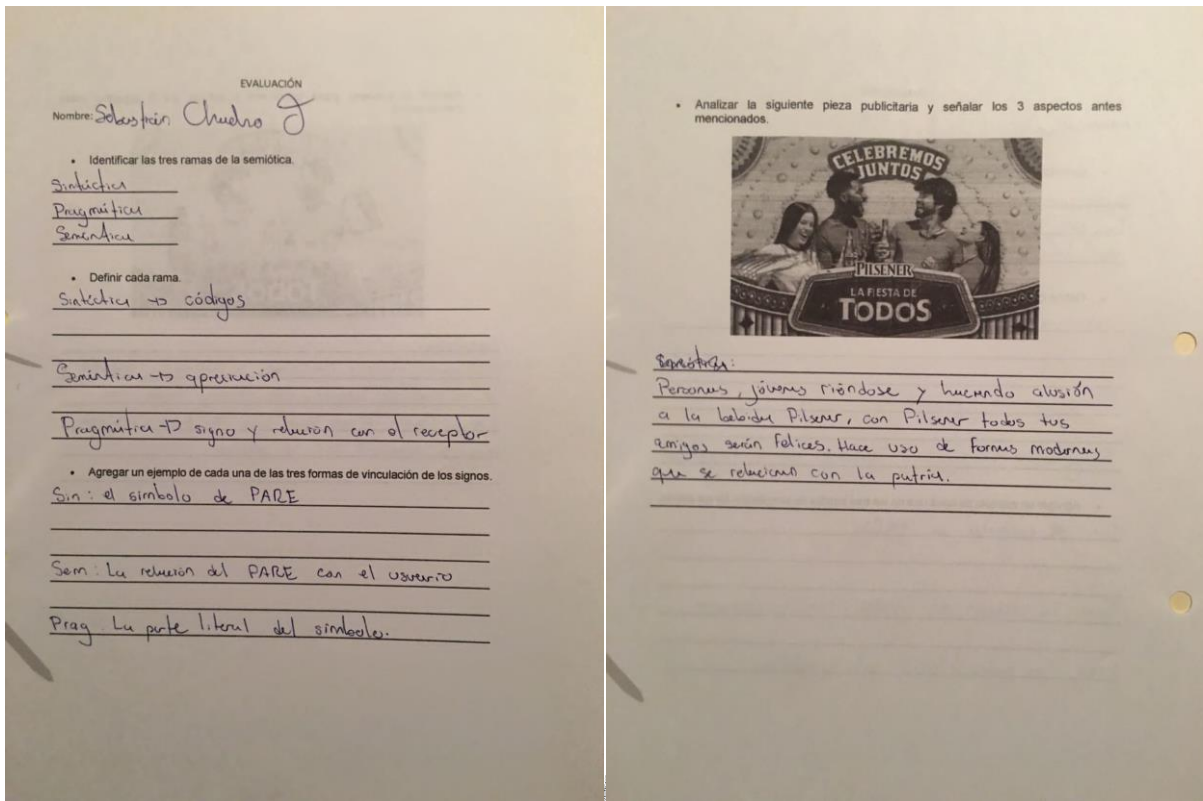 EVALUACIÓN
Nombre: Sebastián
• Identificar las tres ramas de la semiótica.
Sintáctica
Pragmática
Semántica
• Definir cada rama.
Sintáctica → códigos
Semántica → apreciación
Pragmática → signo y relación con el receptor
• Agregar un ejemplo de cada una de las tres formas de vinculación de los signos.
Sin: el símbolo de PARE
Sem: La relación del PARE con el usuario
Prag. La parte literal del símbolo.
• Analizar la siguiente pieza publicitaria y señalar los 3 aspectos antes
mencionados.
CELEBREMOS
JUNTOS
PILSENER
LA FIESTA DE
TODOS
Personas, jóvenes riéndose y haciendo alusión
a la bebida Pilsener, con Pilsener todos tus
amigos serán felices. Hace uso de formas modernas
que se relacionan con la patria.